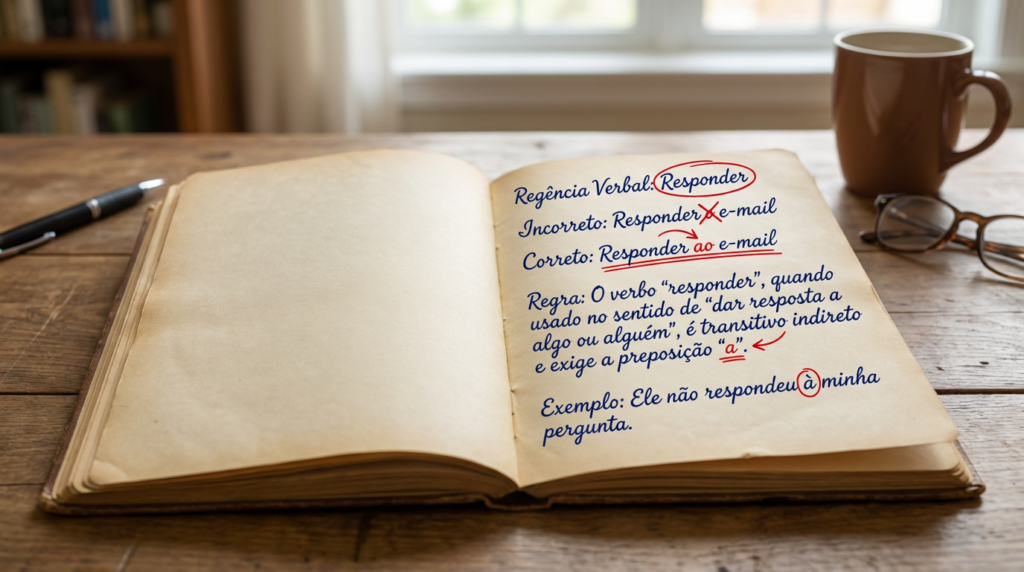 Regência Verbal: Responder
Incorreto: Responder o e-mail
Correto: Responder ao e-mail
Regra: O verbo “responder”, quando
usado no sentido de “dar resposta a
algo ou alguém”, é transitivo indireto
e exige a preposição “a”.
Exemplo: Ele não respondeu à minha
pergunta.